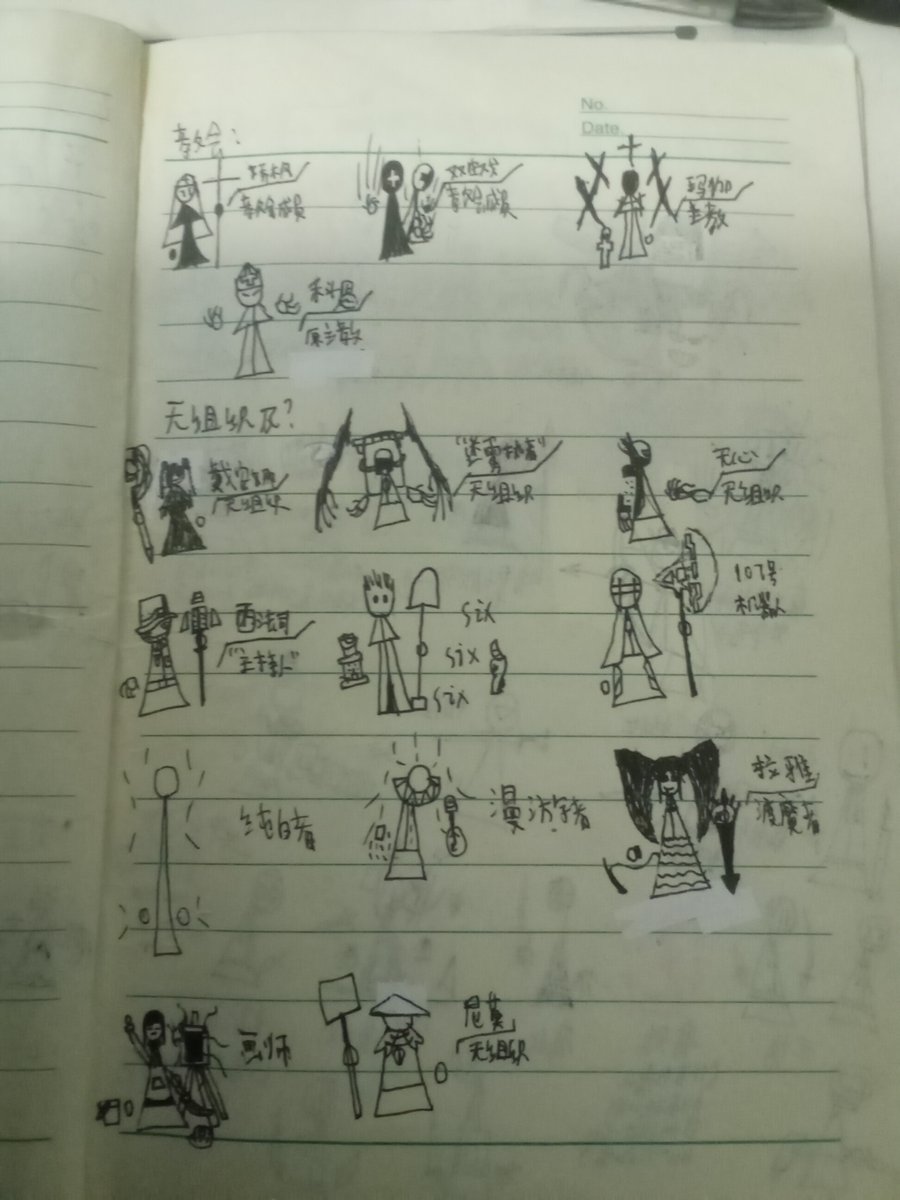 No.
Date.
教会：
教会成員
双面戏
教会成員
玛伽
主教
科恩
原主教
无组织及？
戴安娜
无组织
无组织
无心
无组织
西法诃
"主持人"
six
six
six
107号
机器人
纯白者
漫游者
拉雅
渡魔者
画师
尼莫
无组织